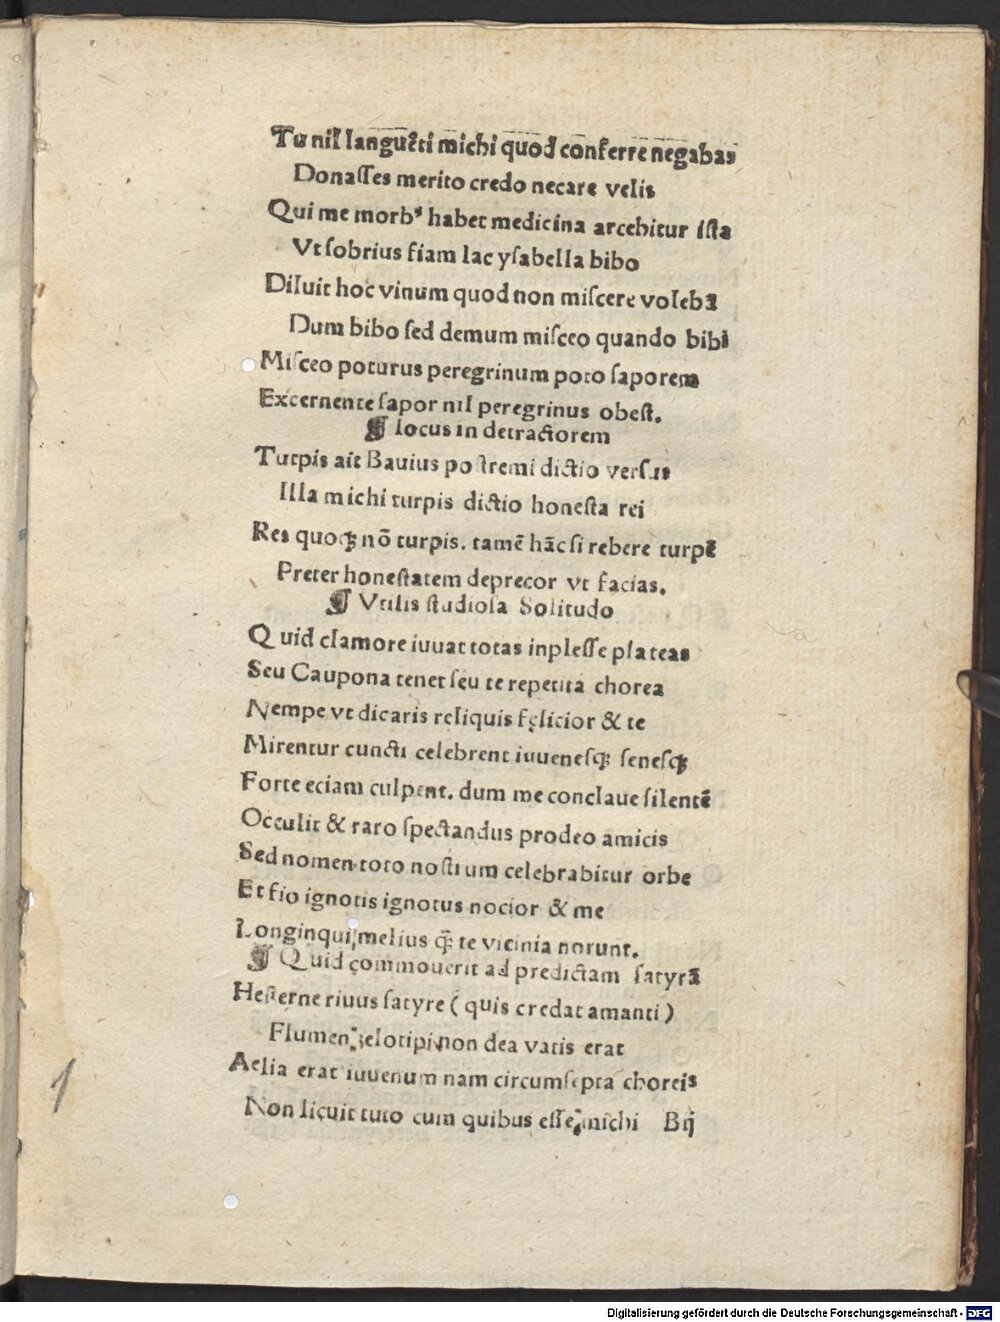 Tu nil languẽti michi quod conferre negabas
Donaſſes merito credo necare velis
Qui me morbꝰ habet medicina arcebitur iſta
Vt ſobrius fiam lac yſabella bibo
Diluit hoc vinum quod non miſcere volebã
Dum bibo ſed demum miſceo quando bibi
Miſceo poturus peregrinum poto ſaporem
Excernente ſapor nil peregrinus obeſt.
¶ Iocus in detractiorem
Turpis ait Bauius poſtremi dictio verſus
Illa michi turpis dictio honeſta rei
Res quoqꝫ nõ turpis. tamẽ hãc ſi rebere turpẽ
Preter honeſtatem deprecor vt facias.
¶ Vtilis ſtudioſa Solitudo
Quid clamore iuuat totas inpleſſe plateas
Seu Caupona tenet ſeu te repetita chorea
Nempe vt dicaris reliquis fęlicior & te
Mirentur cuncti celebrent iuuenesqꝫ senesqꝫ
Forte eciam culpent. dum me conclaue ſilentẽ
Occulit & raro ſpectandus prodeo amicis
Sed nomen toto noſtrum celebrabitur orbe
Et fio ignotis ignotus nocior & me
Longinqui melius q̃ te vicinia norunt.
¶ Quid commouerit ad predictam ſatyrã
Heſterne riuus ſatyre ( quis credat amanti )
Flumen zelotipi non dea vatis erat
Aelia erat iuuenum nam circumſepta choreis
Non licuit tuto cum quibus eſſe michi Bij
1
Digitalisierung gefördert durch die Deutsche Forschungsgemeinschaft - DFG